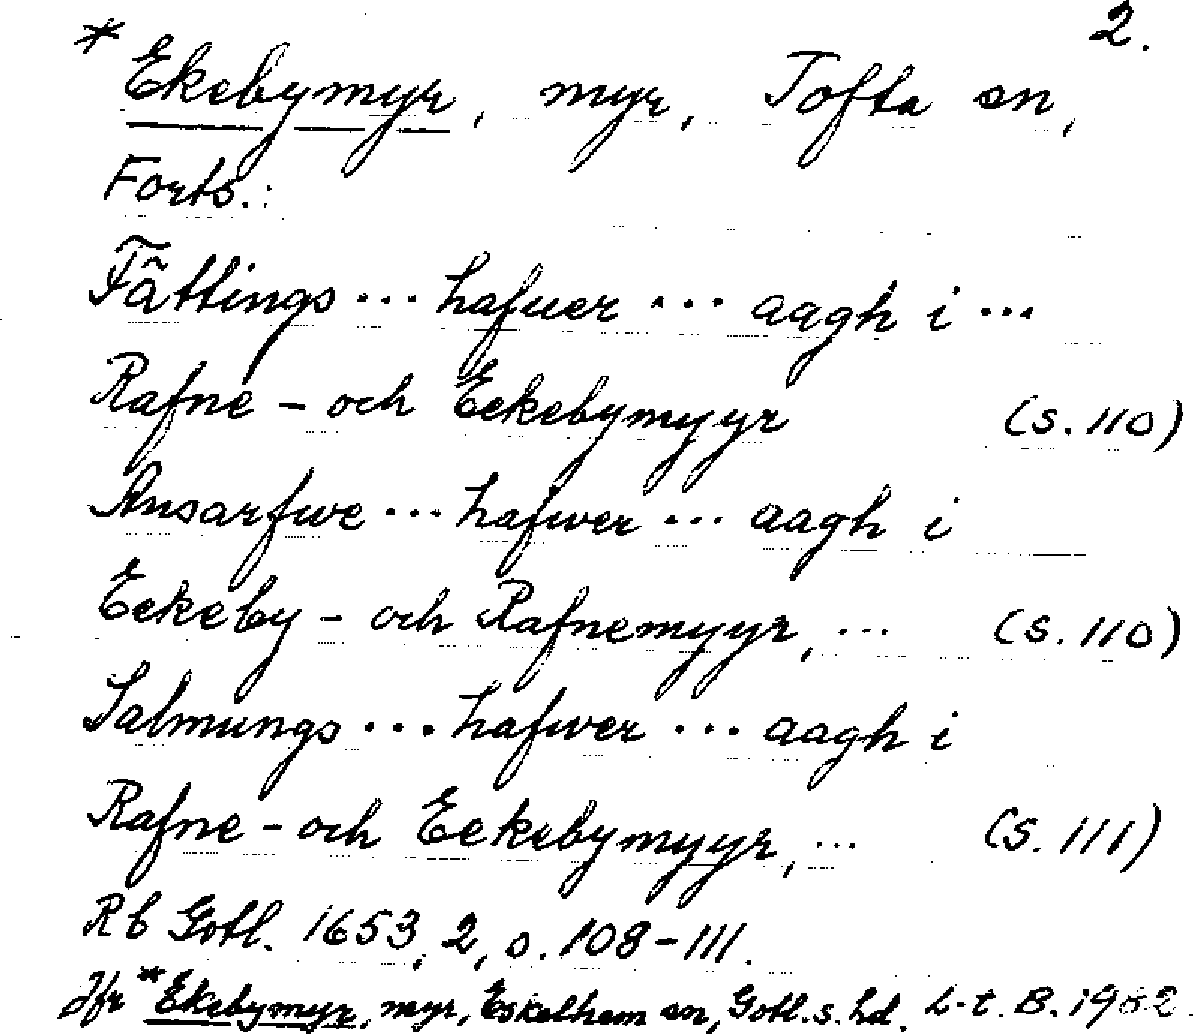 2.
* Ekebymyr, myr, Tofta sn,
Forts.:
Fättings ... hafuer ... aagh i ...
Rafne - och Eekebymyyr (s. 110)
Ansarfwe ... hafwer ... aagh i
Eekeby - och Rafnemyyr, ... (s. 110)
Salmungs ... hafwer ... aagh i
Rafne - och Eekebymyyr, ... (s. 111)
Rb Gotl. 1653, 2, s. 108-111.
Jfr * Ekebymyr, myr, Eskelhem sn, Gotl. s. hd. L-t. B. 1982